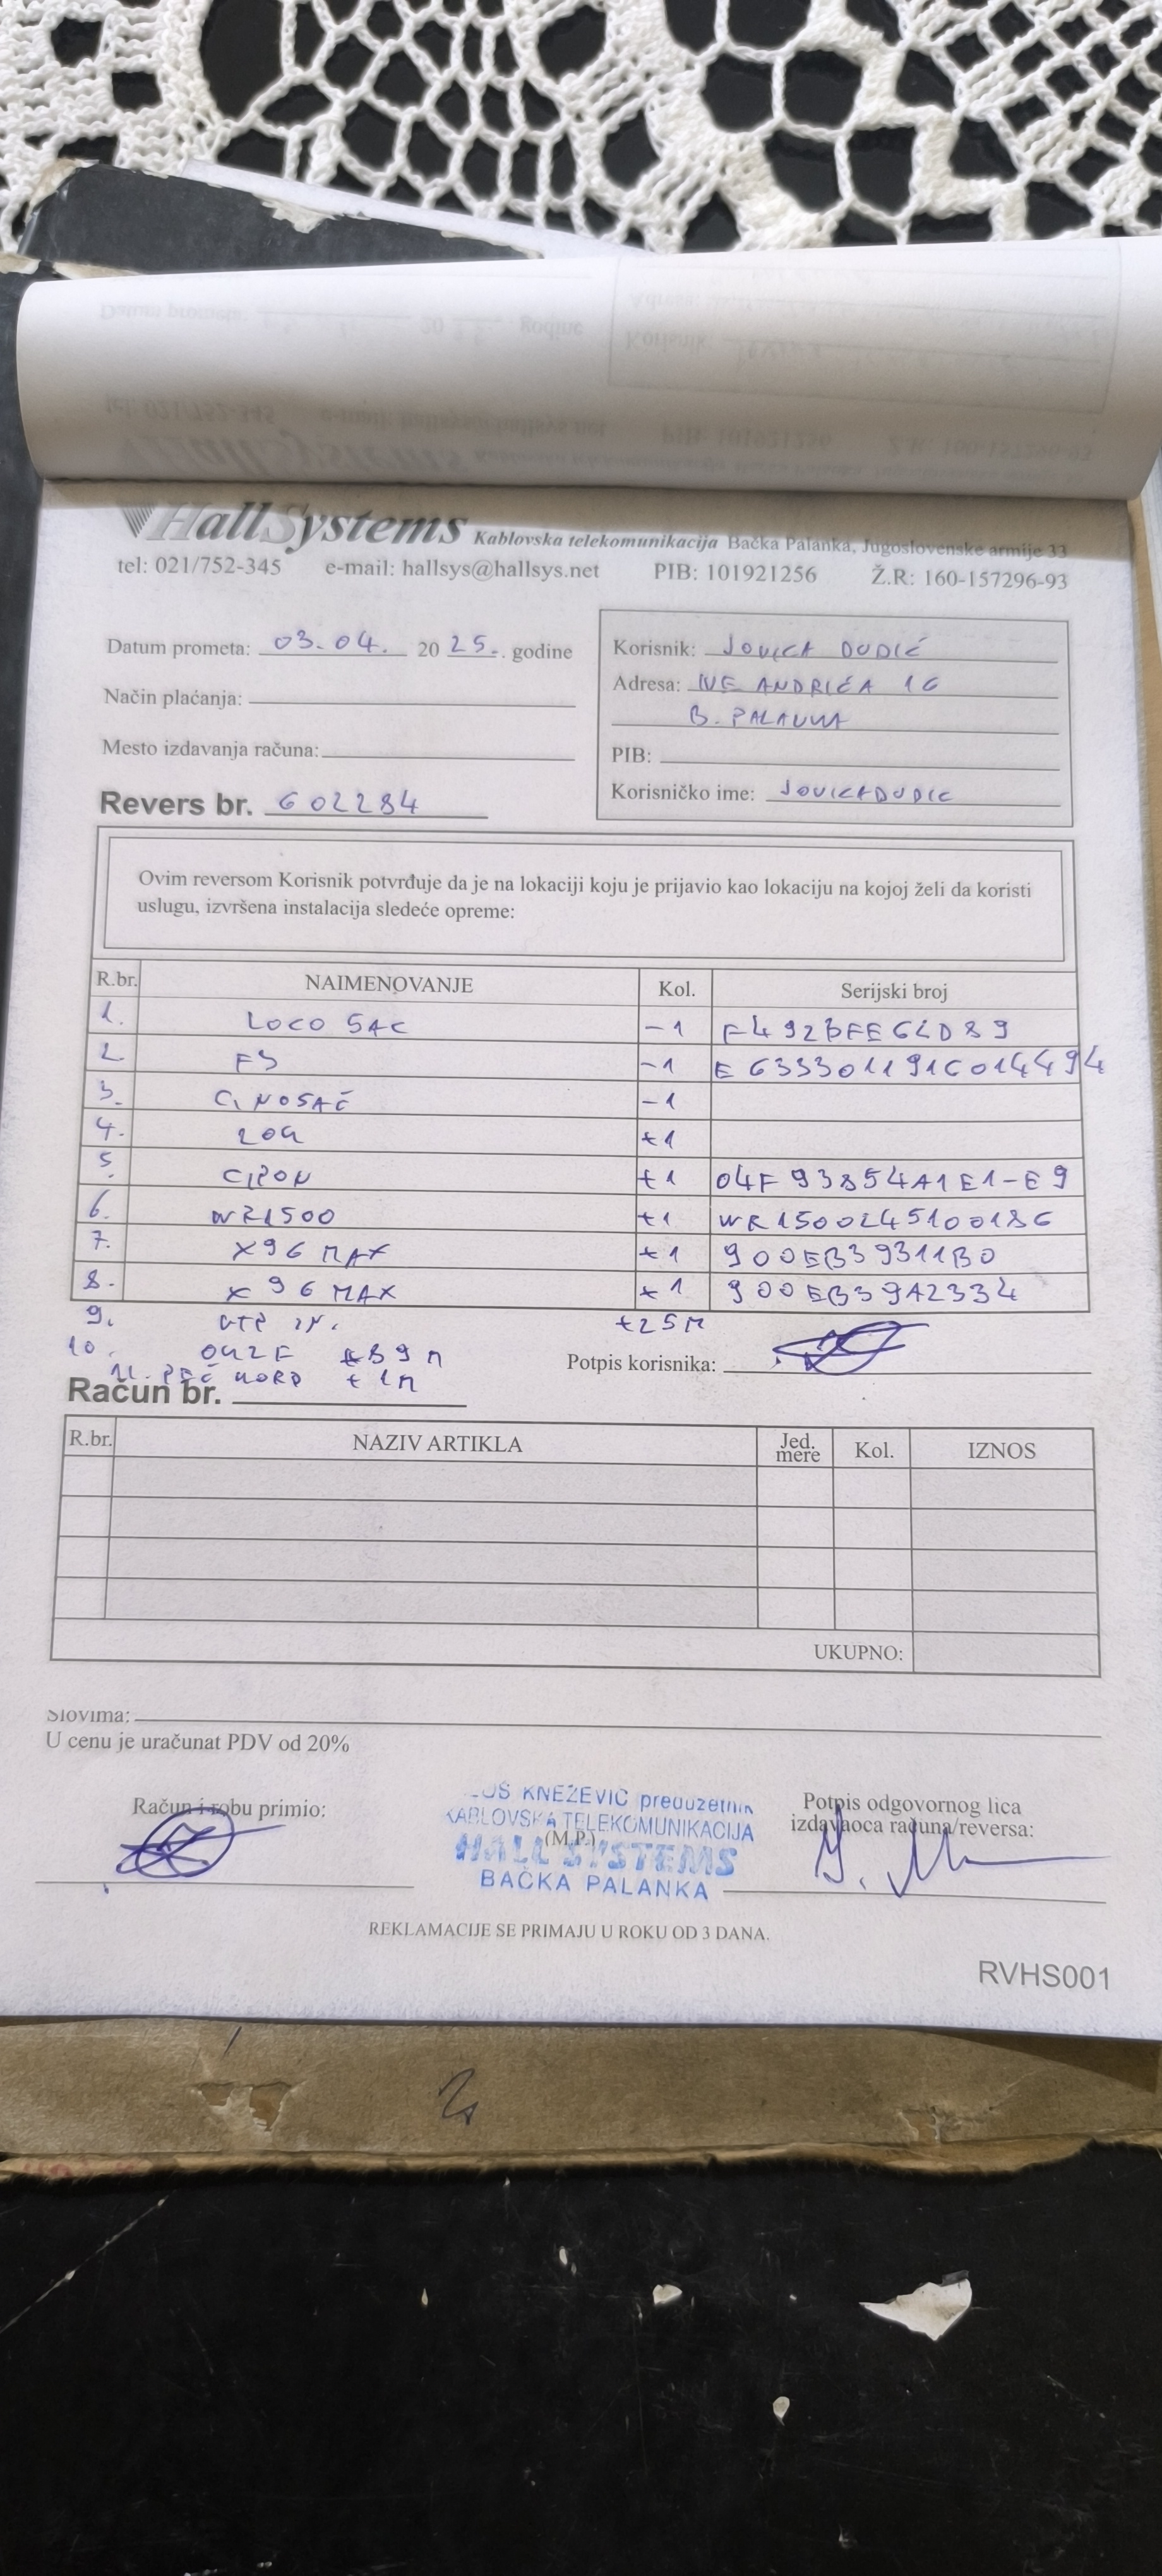 HallSystems Kablovska telekomunikacija Bačka Palanka, Jugoslovenske armije 33
tel: 021/752-345 e-mail: hallsys@hallsys.net PIB: 101921256 Ž.R: 160-157296-93
Datum prometa: 03.04. 20 25. godine
Način plaćanja:
Mesto izdavanja računa:
Revers br. 602284
Korisnik: JOVICA DUDIĆ
Adresa: IVE ANDRIĆA 16
B. PALANKA
PIB:
Korisničko ime: JOVICADUDIC
Ovim reversom Korisnik potvrđuje da je na lokaciji koju je prijavio kao lokaciju na kojoj želi da koristi
uslugu, izvršena instalacija sledeće opreme:
R.br. NAIMENOVANJE Kol. Serijski broj
1. LOCO 5AC -1 F492BFEE64D89
2. F3 -1 E6333011916014494
3. NOSAČ -1
4. +1
5. +1 04F93854A1E1-E9
6. WR1500 +1 WR1500245100186
7. X96 MAX +1 900EB39311B0
8. X96 MAX +1 900EB39A2334
9. UTP IN. +25M
10. +89M
11. +1M
Potpis korisnika:
Račun br.
R.br. NAZIV ARTIKLA Jed. mere Kol. IZNOS
UKUPNO:
Slovima:
U cenu je uračunat PDV od 20%
Račun i robu primio:
KNEŽEVIĆ preduzetnik
KABLOVSKA TELEKOMUNIKACIJA
(M.P.)
HALL SYSTEMS
BAČKA PALANKA
Potpis odgovornog lica
izdavaoca računa/reversa:
REKLAMACIJE SE PRIMAJU U ROKU OD 3 DANA.
RVHS001